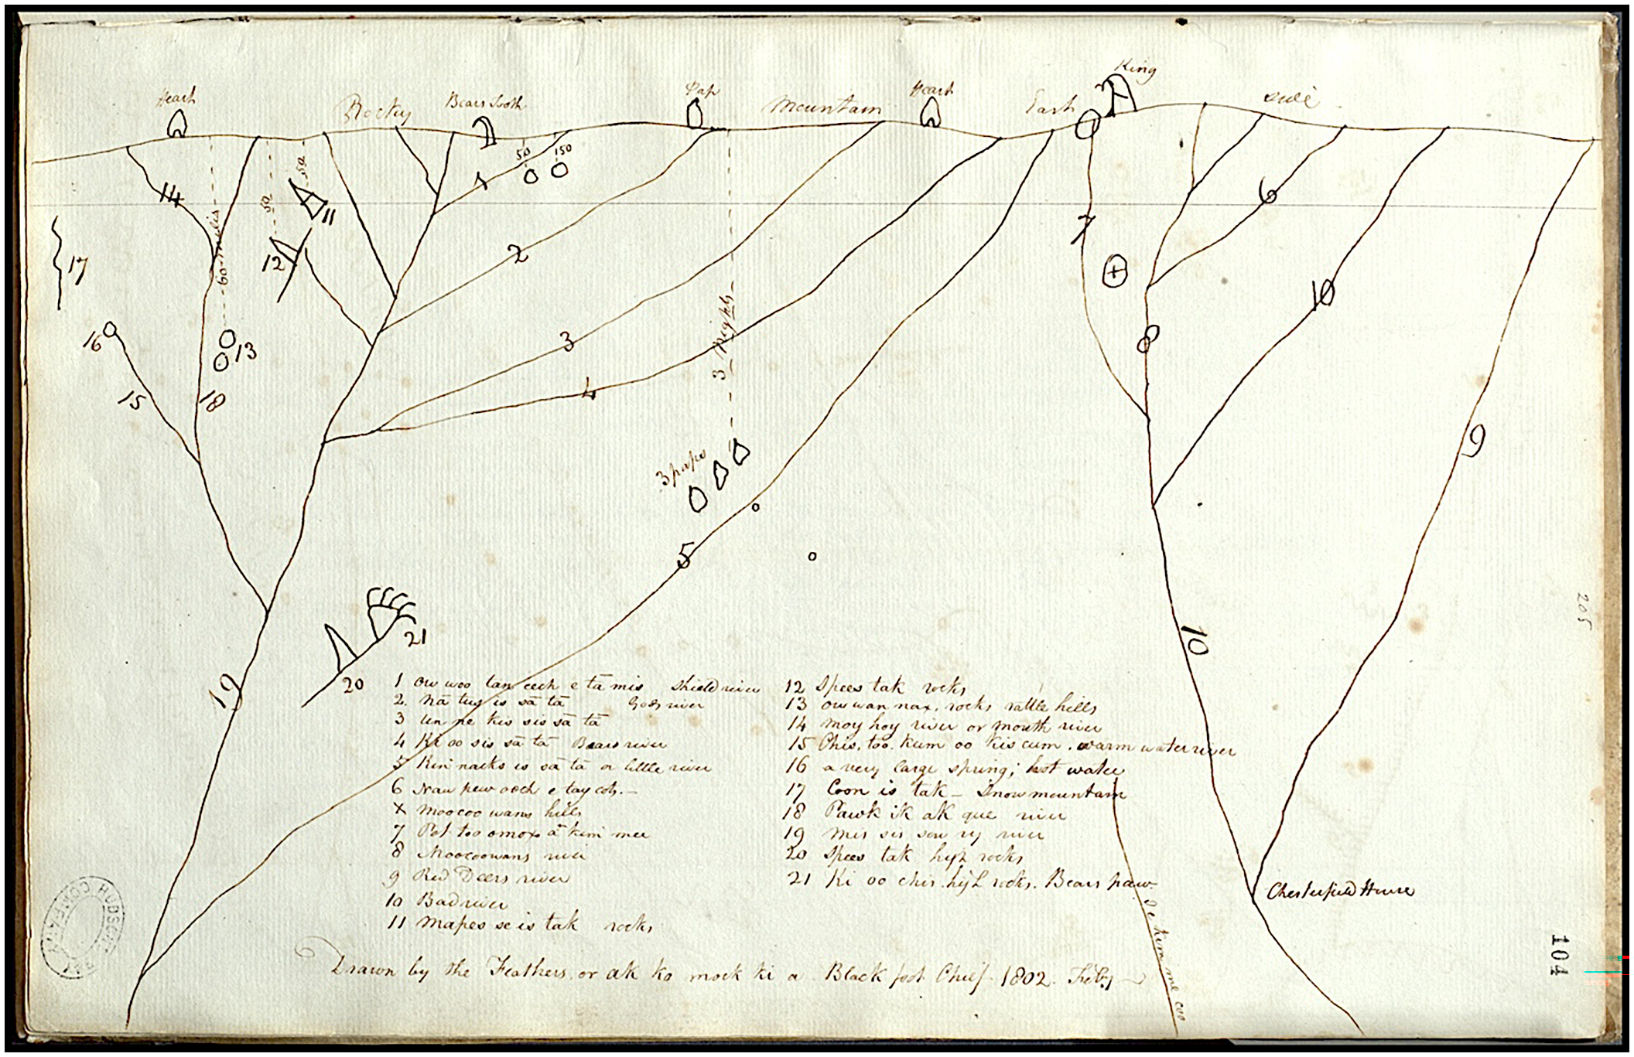 King
Heart Rocky Bears Tooth Pap Mountain Heart East side
50 150
14 50 1
50 11
60 miles
17 12 2 7 6
16 13 3 8 10
15 18 4 3 Nights 9
3 paps
5
205
21
20
19 10
1 Ow woo tan eech e tā mis Shield river
2 Nā tus is sā tā Gods river
3 Un ne kis sis sā tā
4 Ki oo sis sā tā Bears river
5 Kin nacks is sā tā or little river
6 Naw pew ooch e tay coh. —
X Moocoowans hills
7 Pot too omox ā kim mee
8 Moocoowans river
9 Red Deers river
10 Bad river
11 Mapes se is tak rocks
12 Spees tak rocks
13 Ow wan nax, rocks rattle hills
14 Moy hoy river or mouth river
15 Phis. too. kum oo kis cum. warm water river
16 a very large spring; hot water
17 Coon is tak — Snow mountain
18 Pawk ik ak que river
19 Mis sis sow ry river
20 Spees tak high rocks
21 Ki oo chis. high rocks. Bears paw
Chesterfield House
104
Drawn by the Feathers or ak ko mock ki a Black foot Chief 1802. Feby